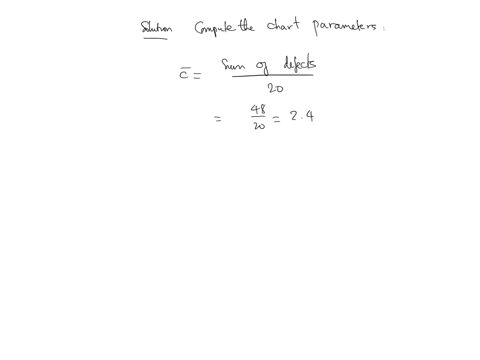 Solution Compute the chart parameters:
c̄ = Sum of defects / 20
= 48/20 = 2.4